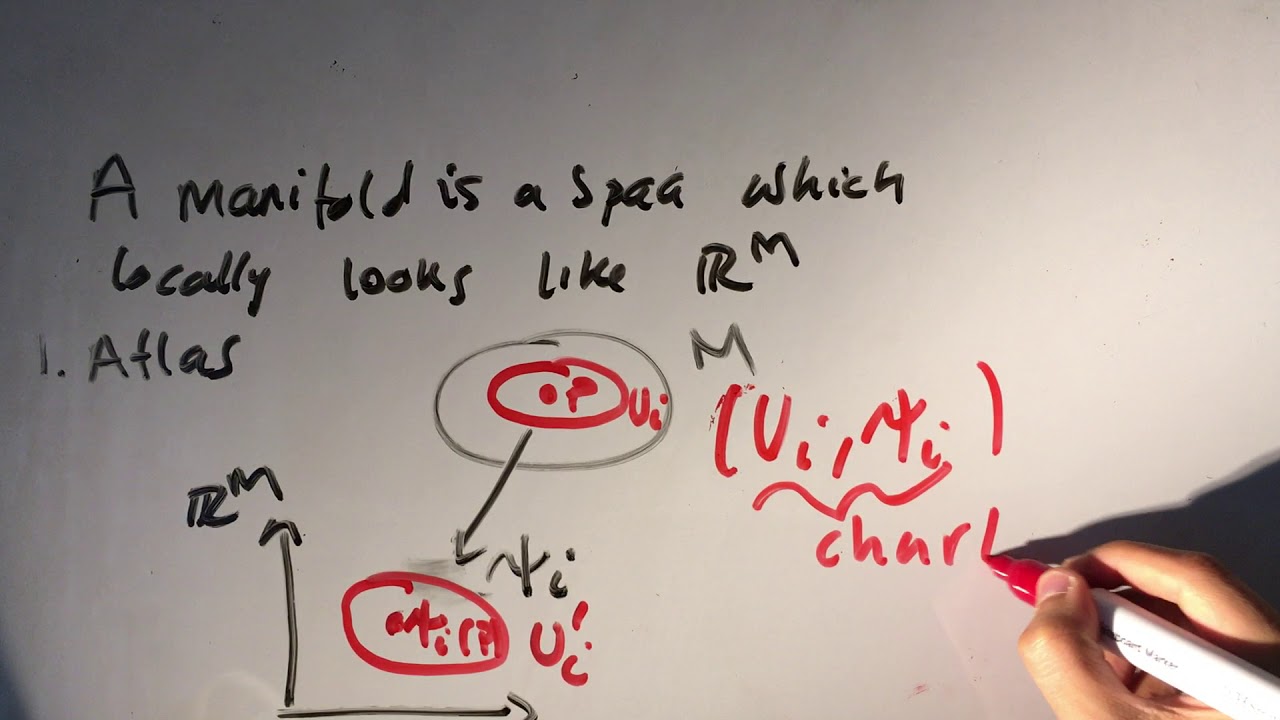 A manifold is a space which
locally looks like ℝᴹ
1. Atlas
M
p
Uᵢ
(Uᵢ, ψᵢ)
ℝᴹ
chart
ψᵢ
ψᵢ(p)
Uᵢ'